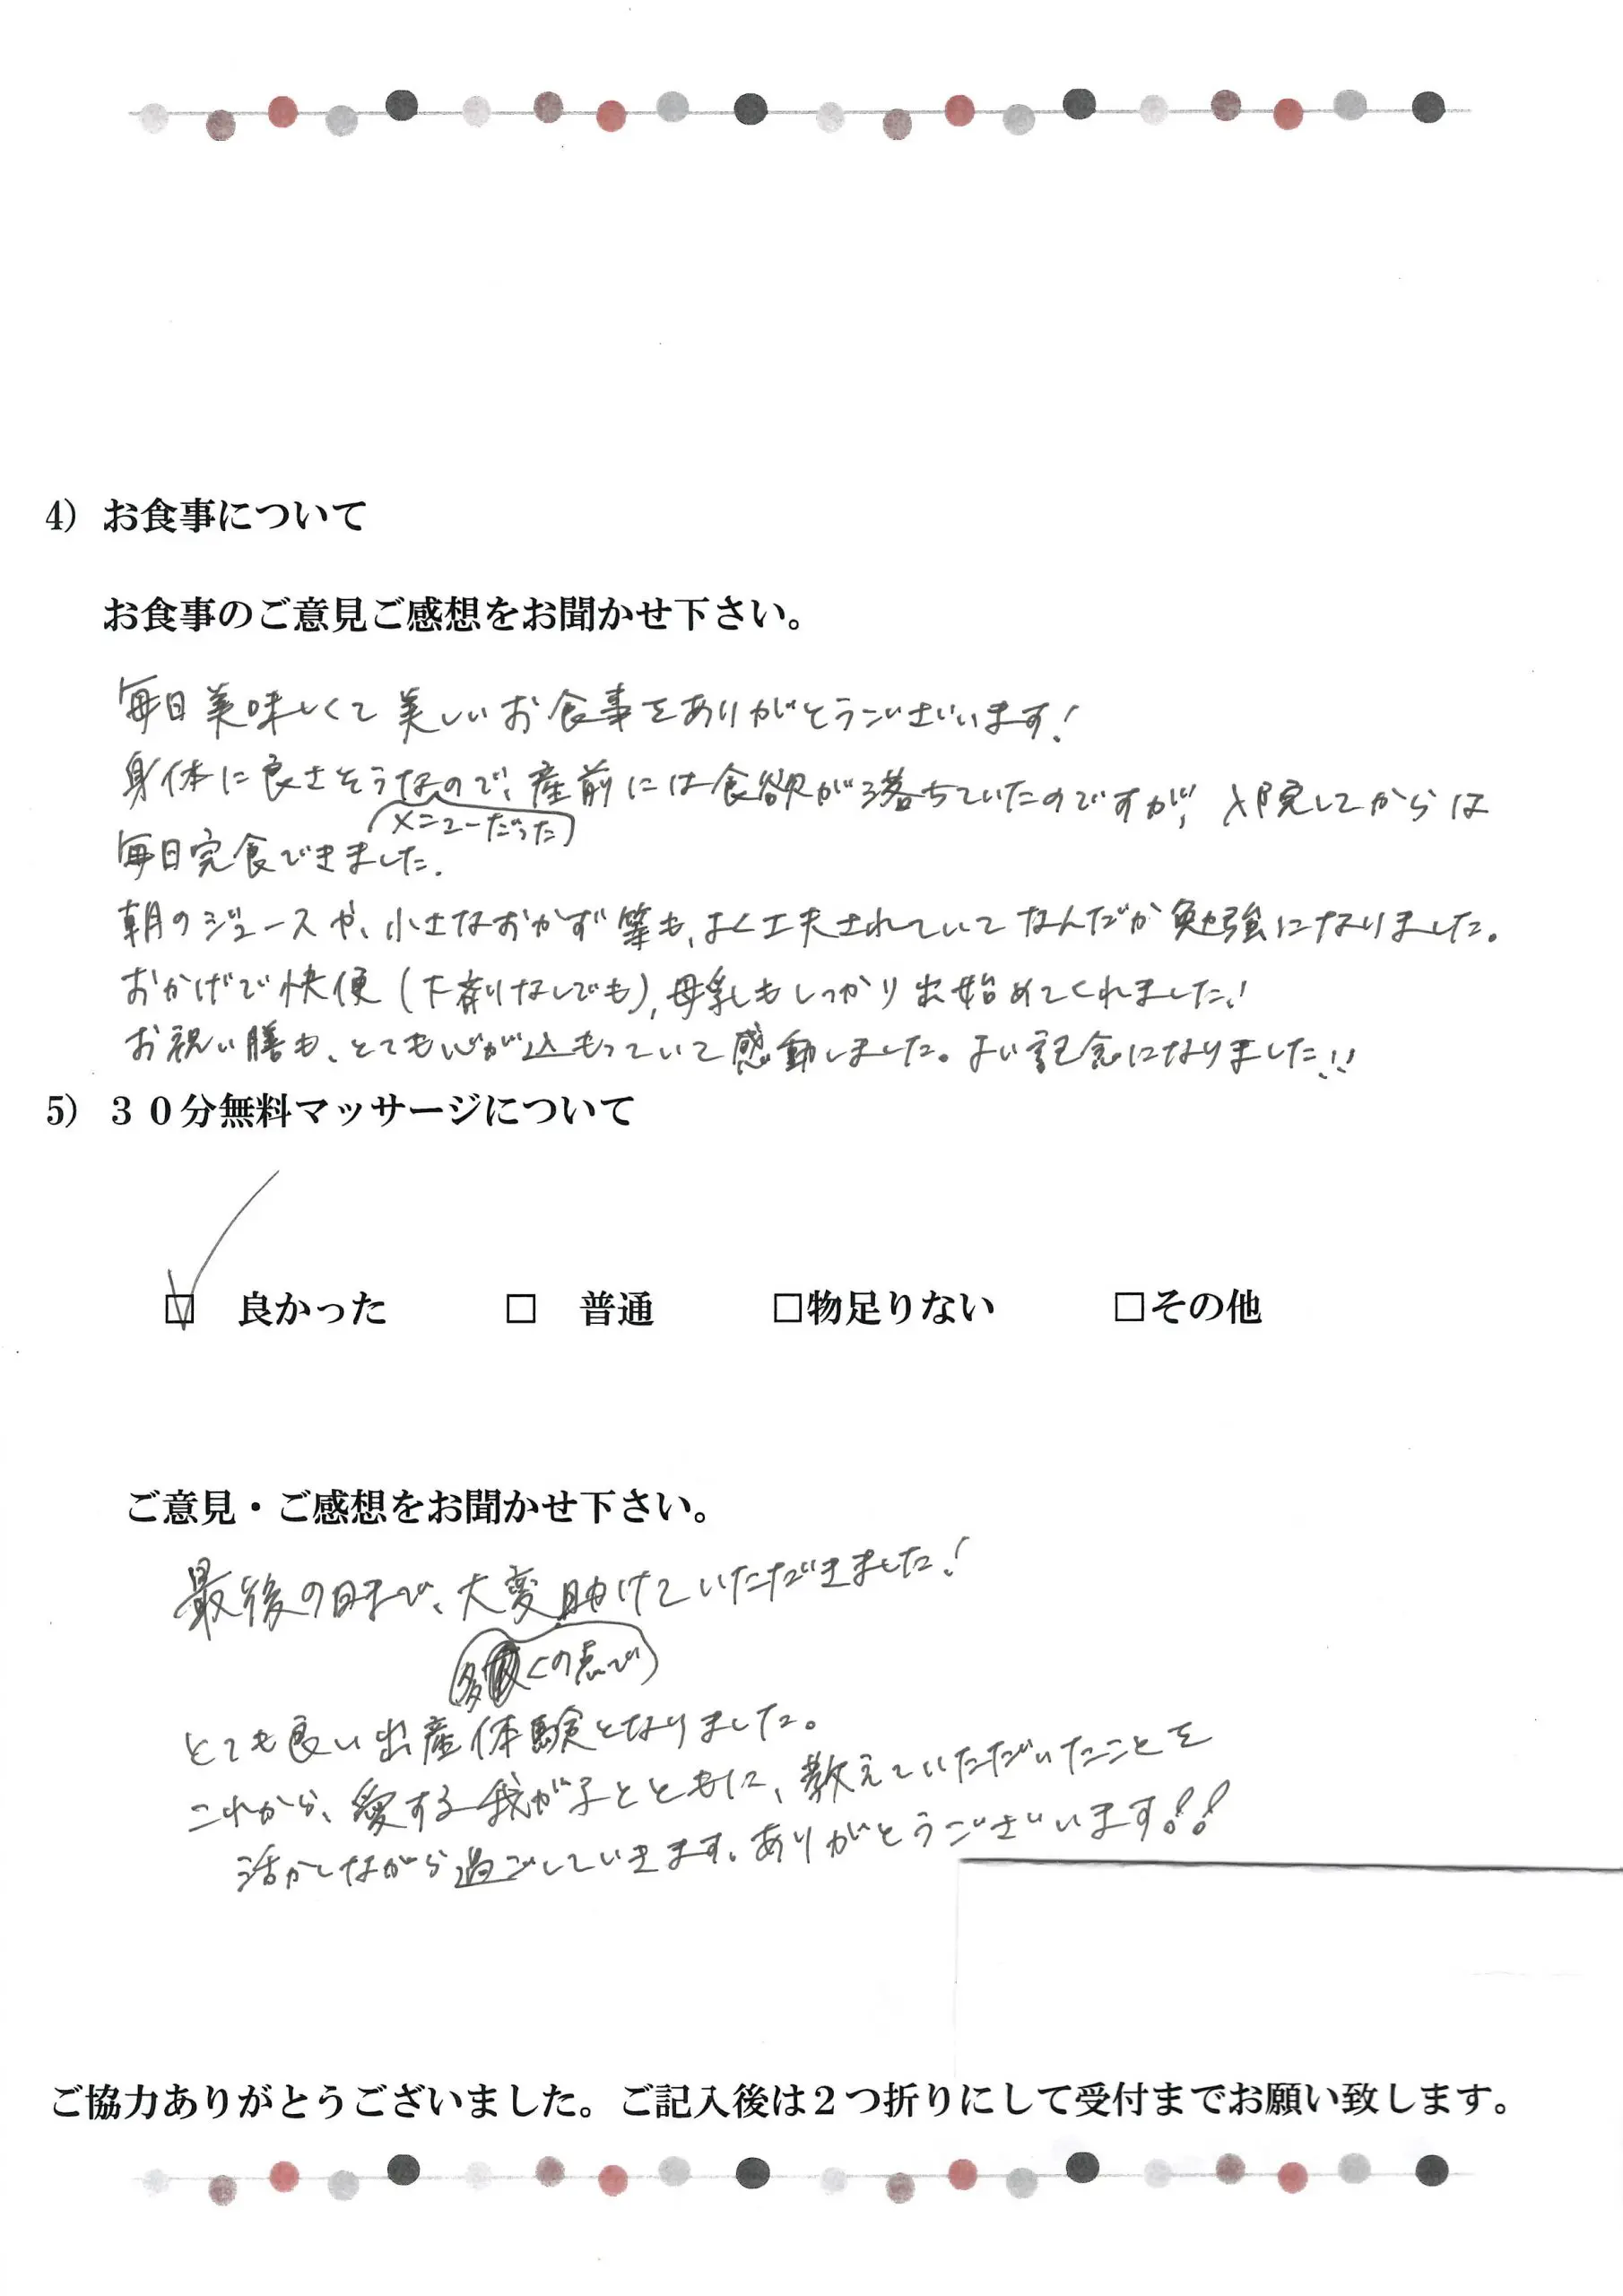 4) お食事について
お食事のご意見ご感想をお聞かせ下さい。
毎日美味しくて美しいお食事をありがとうございます!
身体に良さそうなので、産前には食欲が落ちていたのですが、入院してからは
(メニューだった)
毎日完食できました.
朝のジュースや、小さなおかず等も、よく工夫されていてなんだか勉強になりました。
おかげで快便(下剤なしでも),母乳もしっかり出始めてくれました!
お祝い膳も、とても心が込もっていて感動しました。よい記念になりました!!
5) 30分無料マッサージについて
☑ 良かった □ 普通 □物足りない □その他
ご意見・ご感想をお聞かせ下さい。
最後の日まで、大変助けていただきました!
(多くの点で)
とても良い出産体験となりました。
これから、愛する我が子とともに、教えていただいたことを
活かしながら過ごしていきます。ありがとうございます!!
ご協力ありがとうございました。ご記入後は2つ折りにして受付までお願い致します。